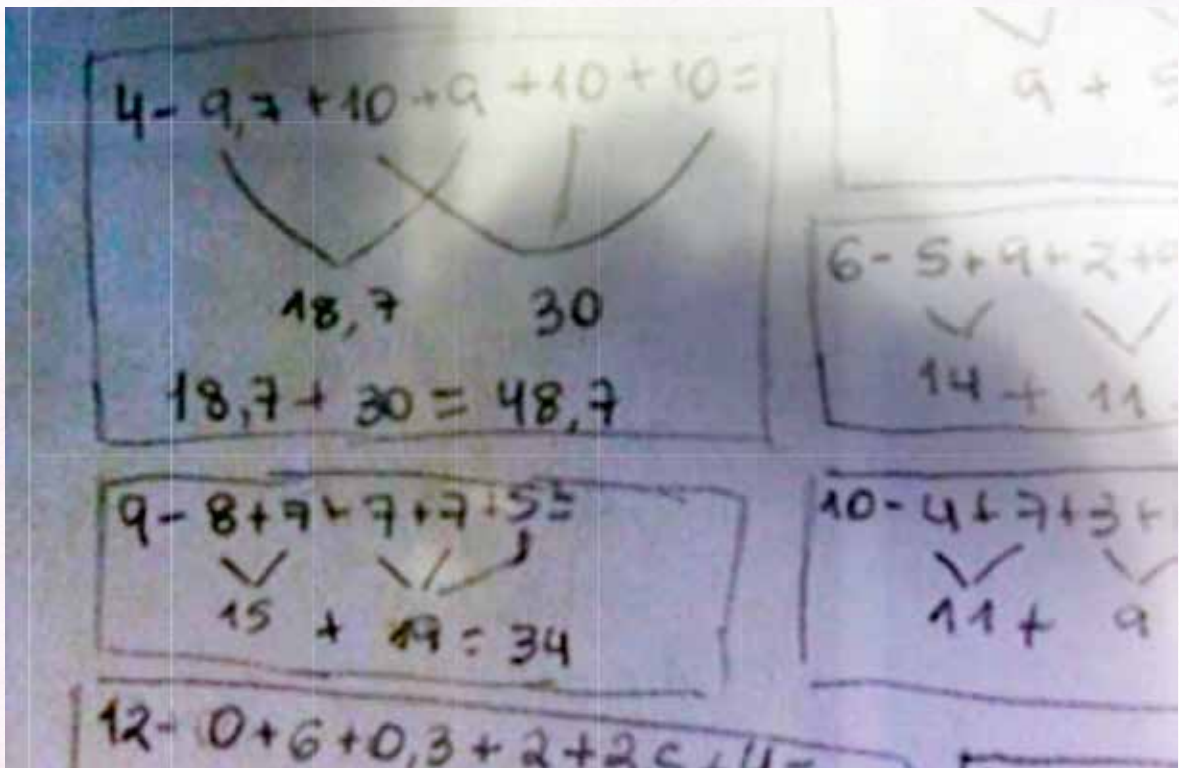 4- 9,7 +10 +9 +10 +10=
18,7 30
18,7 + 30 = 48,7
9 +
6- 5+9+2+
14 + 11
9- 8+7+7+7+5=
15 + 19 = 34
10- 4+7+3+
11+ 9
12- 0+6+0,3+2+